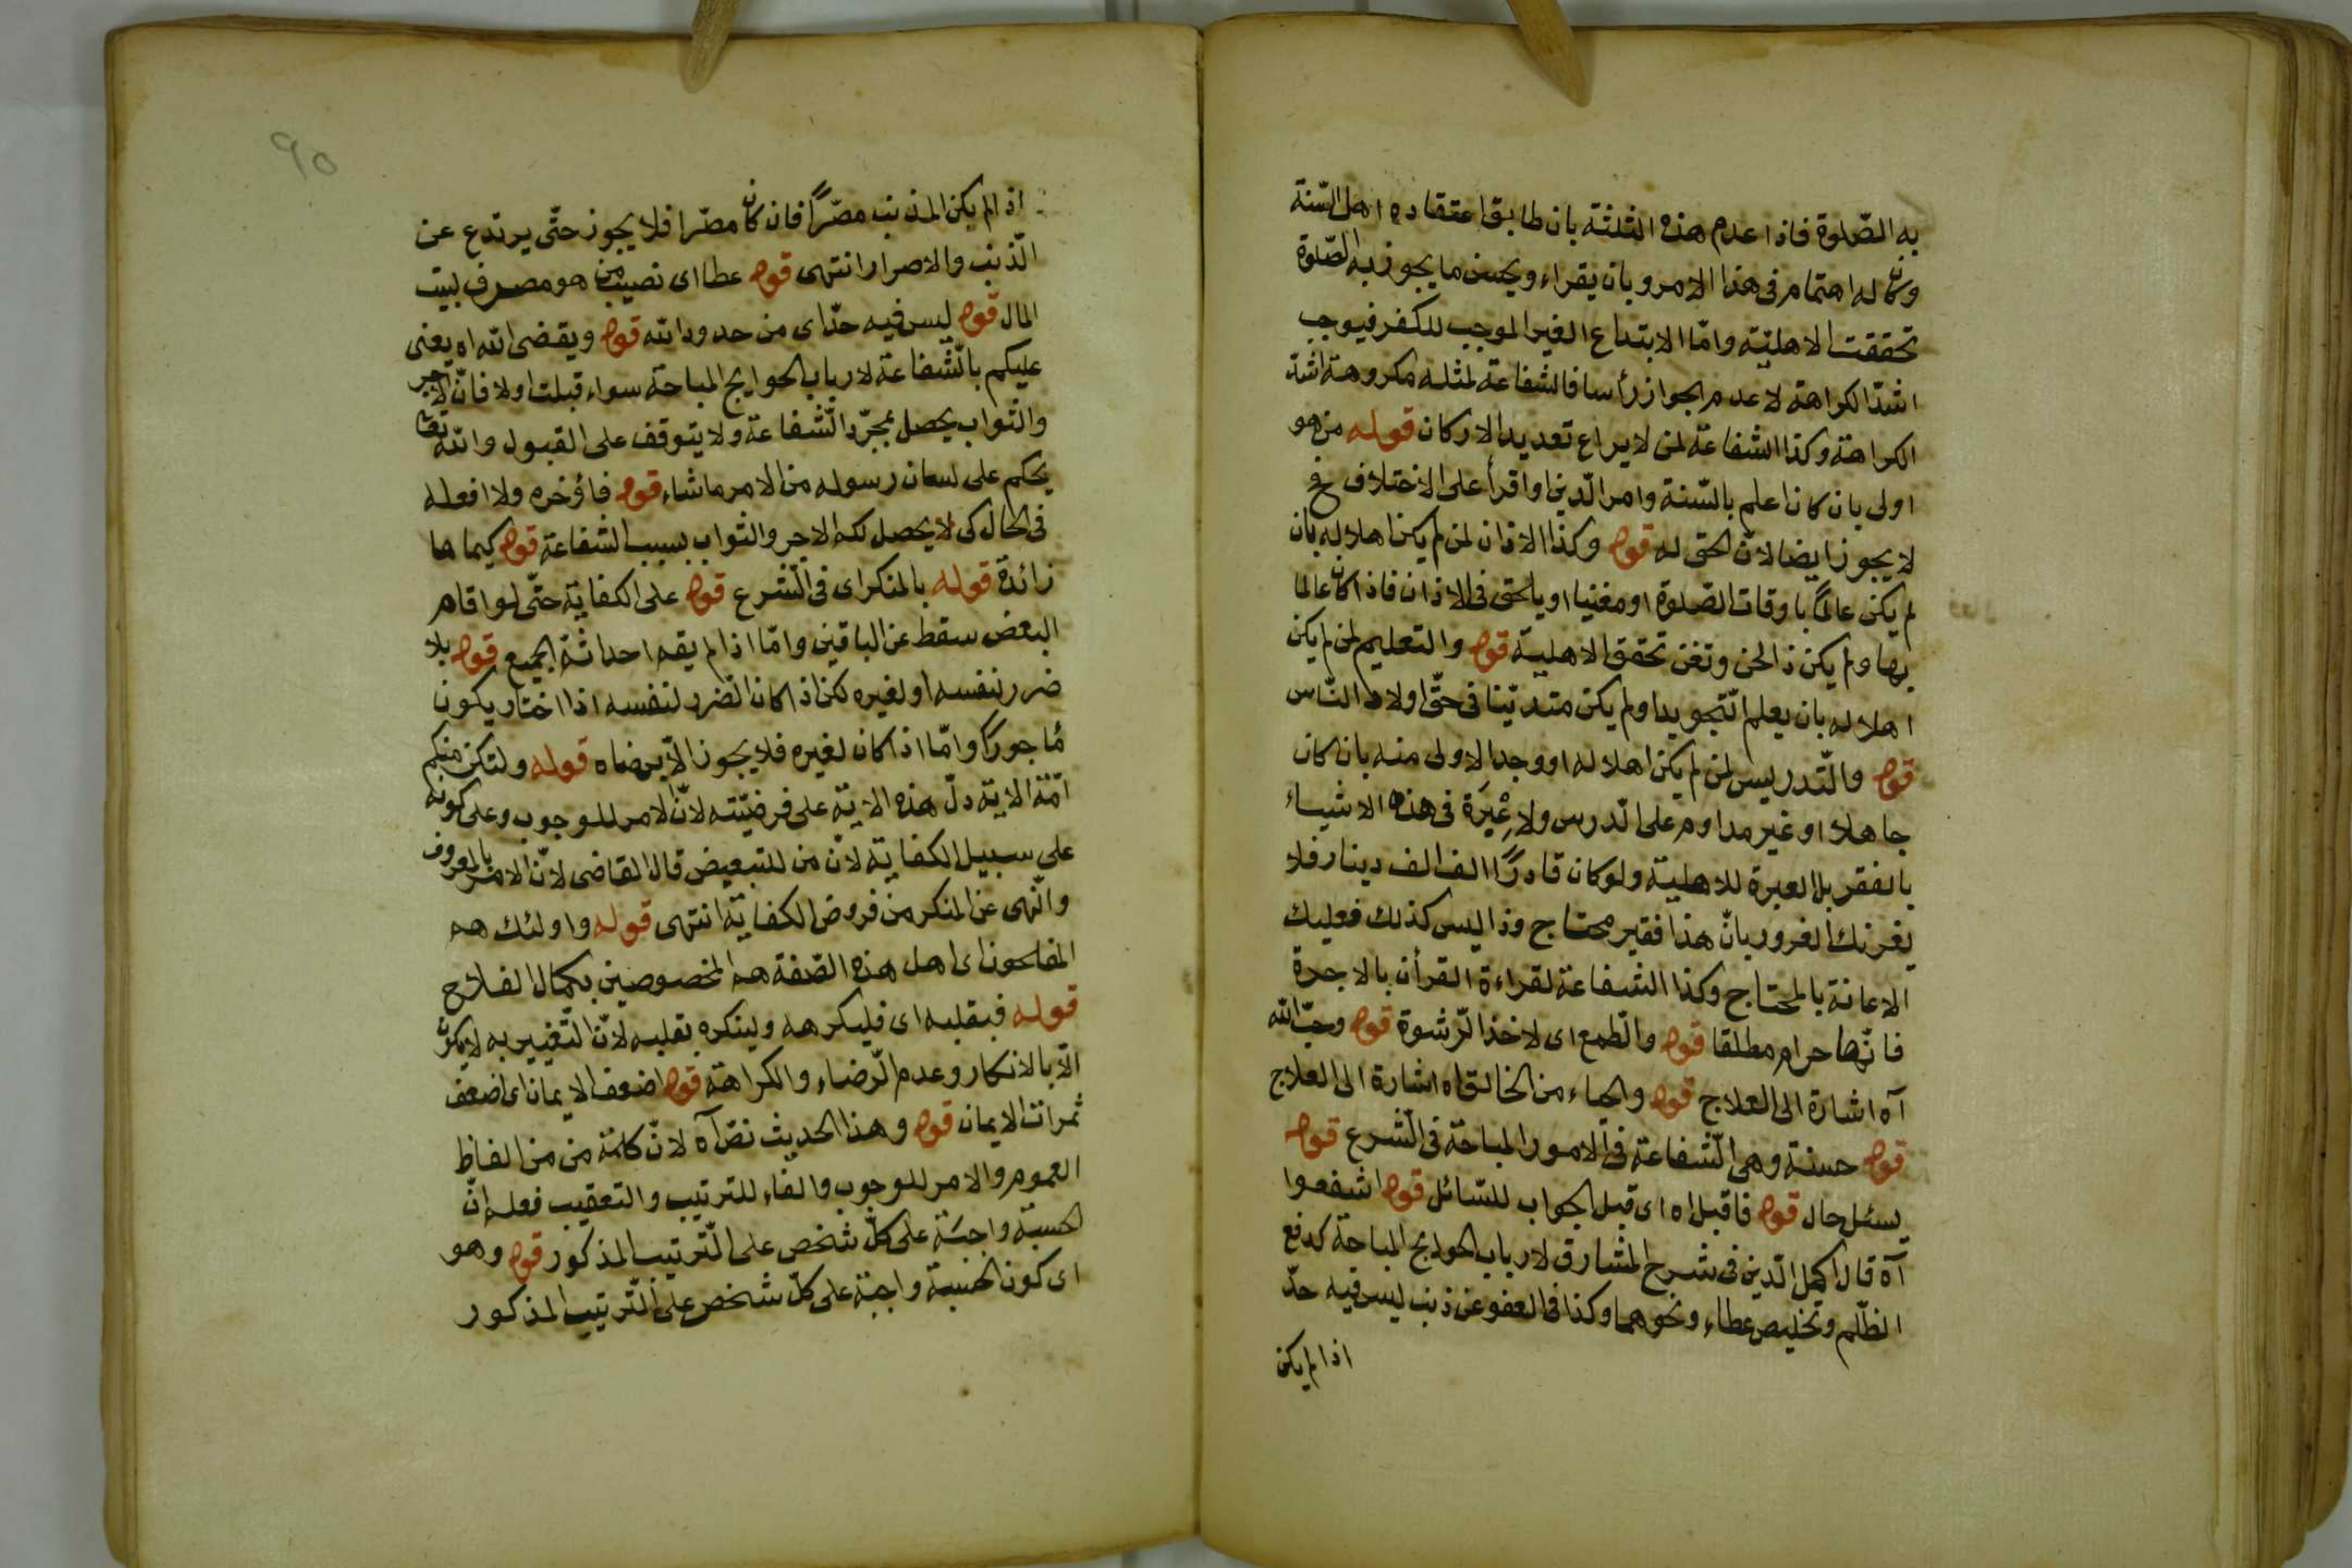 به الصّلوة فاذا عدم هذه الثلثة بان طابق اعتقاده اهل السّنة
وكان له اهتمام فى هذا الامر وبان يقراء ويحسن ما يجوز به الصّلوة
تحققت الاهليّة وامّا الابتداع الغير الموجب للكفر فيوجب
اشدّ الكراهة لا عدم الجواز رأسا فالشفاعة لمثله مكروهة اشدّ
الكراهة وكذا الشفاعة لمن لا يراع تعديل الاركان قوله من هو
اولى بان كان اعلم بالسّنة وامر الدّين او اقرأ على الاختلاف فح
لا يجوز ايضا لانّ الحق له قوله وكذا الاذان لمن لم يكن اهلا له بان
لم يكن عالمًا باوقات الصّلوة او مغنيا او يلحق فى الاذان فاذا كان عالما
بها ولم يكن ذا لحن وتغن تحقق الاهلية قوله والتعليم لمن لم يكن
اهلا له بان يعلم التّجويد او لم يكن متديّنا فى حقّ اولاد النّاس
قوله والتّدريس لمن لم يكن اهلا له او وجد الاولى منه بان كان
جاهلا او غير مداوم على الدّرس ولا عبرة فى هذه الاشياء
بالفقر بل العبرة للاهلية ولو كان قادرًا الف الف دينار فلا
يغرنك الغرور بانّ هذا فقير محتاج وذا ليس كذلك فعليك
الاعانة بالمحتاج وكذا الشفاعة لقراءة القرأن بالاجرة
فانّها حرام مطلقا قوله والطّمع اى لاخذ الرّشوة قوله وحبّ الله
آه اشارة الى العلاج قوله والحياء من الخالق اه اشارة الى العلاج
قوله حسنة وهى الشّفاعة فى الامور المباحة فى الشّرع قوله
يسئل حال قوله فاقبل اه اى قبل الجواب للسّائل قوله اشفعوا
آه قال اكمل الدّين فى شرح المشارق لارباب الحوايج المباحة كدفع
الظّلم وتخليص عطاء ونحوهما وكذا فى العفو عن ذنب ليس فيه حدّ
اذا لم يكن
٩٥
اذا لم يكن المذنب مصّرًا فان كان مصّرا فلا يجوز حتّى يرتدع عن
الذّنب والاصرار انتهى قوله عطا اى نصيب من هو مصرف لبيت
المال قوله ليس فيه حدّ اى من حدود الله قوله ويقضى الله اه يعنى
عليكم بالشّفاعة لارباب الحوايج المباحة سواء قبلت اولا فانّ الاجر
والثواب يحصل بمجرّد الشّفاعة ولا يتوقف على القبول والله تعا
يحكم على لسان رسوله من الامر ما شاء قوله فاؤخره ولا افعله
فى الحال كى لا يحصل لكم الاجر والثواب بسبب الشفاعة قوله كيما ما
زائدة قوله بالمنكر اى فى الشّرع قوله على الكفاية حتّى لو اقام
البعض سقط عن الباقين وامّا اذا لم يقم احد اثم الجميع قوله بلا
ضرر لنفسه او لغيره لكن اذا كان الضرر لنفسه اذا اختار يكون
مأجورًا وامّا اذا كان لغيره فلا يجوز الاّ برضاه قوله ولتكن منكم
امّة الاية دلّ هذه الاية على فرضيّته لانّ الامر للوجوب وعلى كونه
على سبيل الكفاية لانّ من للتبعيض قال القاضى لانّ الامر بالمعروف
والنّهى عن المنكر من فروض الكفاية انتهى قوله واولئك هم
المفلحون اى اهل هذه الصّفة هم المخصوصين بكمال الفلاح
قوله فبقلبه اى فليكرهه ولينكره بقلبه لانّ التّغيير به لا يكون
الاّ بالانكار وعدم الرّضاء والكراهة قوله اضعف الايمان اى اضعف
ثمرات الايمان قوله وهذا الحديث نصّ آه لانّ كلمة من من الفاظ
العموم والامر للوجوب والفاء للترتيب والتعقيب فعلم انّ
الحسبة واجبة على كلّ شخص على التّرتيب المذكور قوله وهو
اى كون الحسبة واجبة على كلّ شخص على التّرتيب المذكور